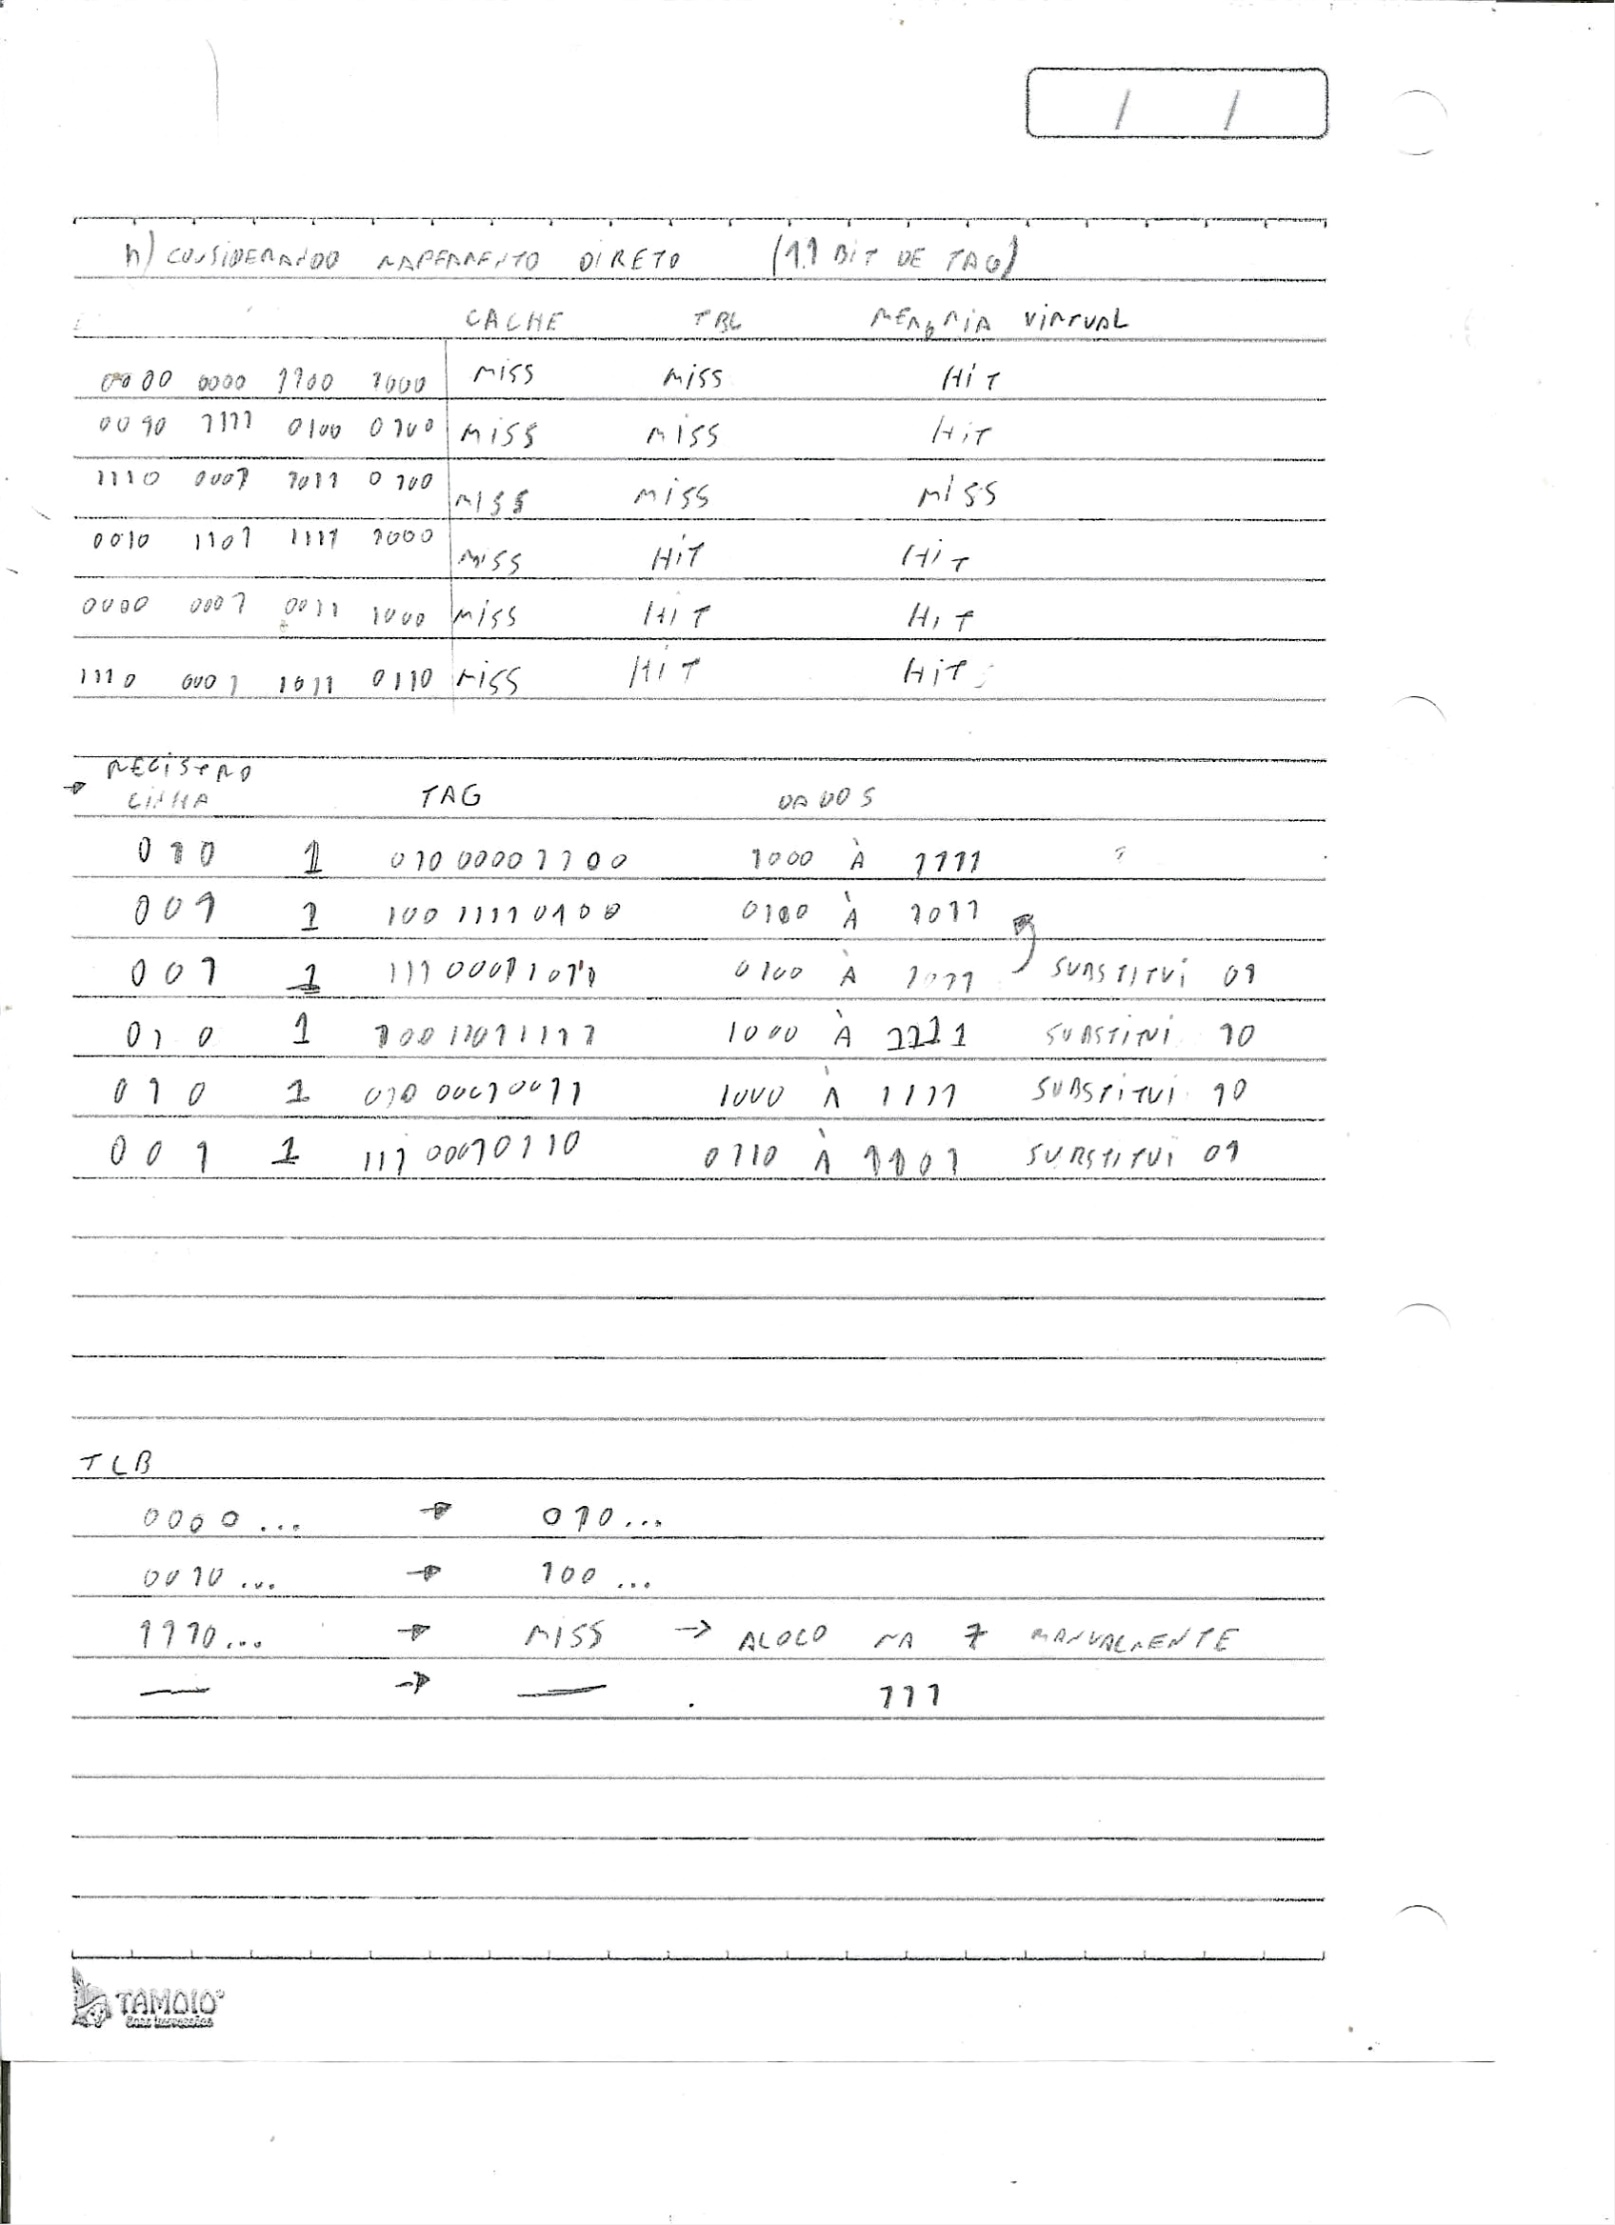 / /
h) CONSIDERANDO MAPEAMENTO DIRETO (11 BIT DE TAG)
CACHE TBL MEMÓRIA VIRTUAL
0000 0000 1100 1000 MISS MISS HIT
0010 1111 0100 0100 MISS MISS HIT
1110 0001 1011 0100 MISS MISS MISS
0010 1101 1111 1000 MISS HIT HIT
0000 0001 0011 1000 MISS HIT HIT
1110 0001 1011 0110 MISS HIT HIT
REGISTRO
→ LINHA TAG DADOS
010 1 01000001100 1000 À 1111
001 1 10011110100 0100 À 1011
001 1 11100011011 0100 À 1011 SUBSTITUI 01
010 1 10011011111 1000 À 1111 SUBSTITUI 10
010 1 01000010011 1000 À 1111 SUBSTITUI 10
001 1 11100010110 0110 À 1101 SUBSTITUI 01
TLB
0000... → 010...
0010... → 100...
1110... → MISS → ALOCO NA 7 MANUALMENTE
— → — . 111
TAMOIO